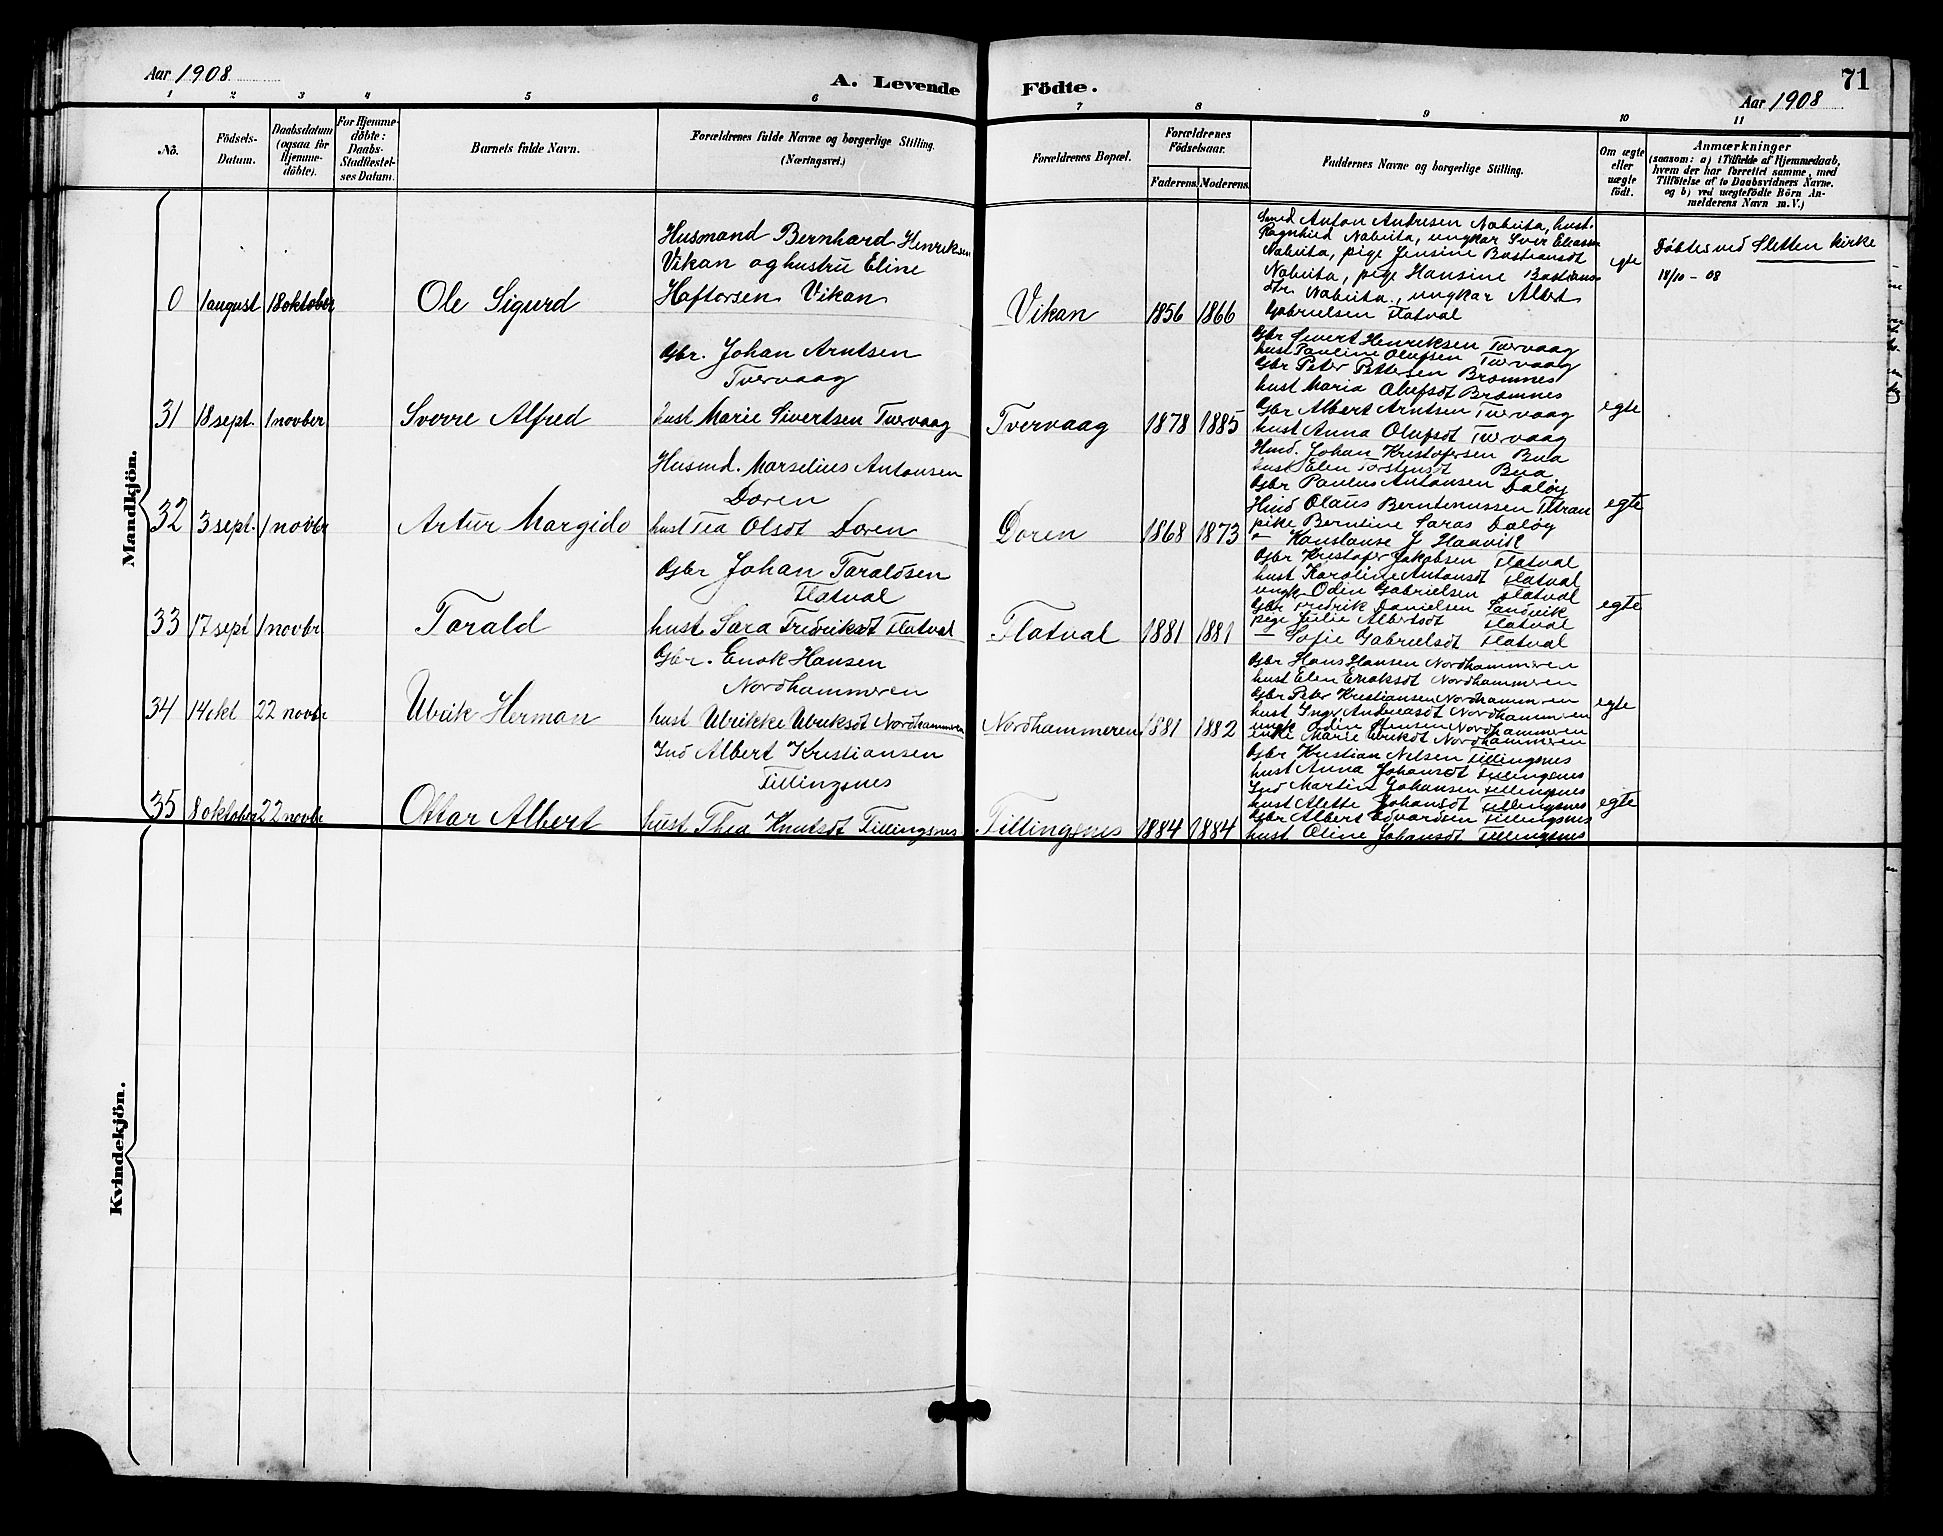 Aar 1908
A. Levende Födte.
71
Aar 1908
1 2 3 4 5 6 7 8 9 10 11
No.
Födsels-
Datum.
Daabsdatum
(ogsaa for
Hjemme-
döbte).
For Hjemme-
döbte:
Daabs-
Stadfæstel-
ses Datum.
Barnets fulde Navn.
Forældrenes fulde Navne og borgerlige Stilling.
(Næringsvei.)
Forældrenes Bopæl.
Forældrenes
Födselsaar.
Faderens.
Moderens.
Faddernes Navne og borgerlige Stilling.
Om ægte
eller
uægte
födt.
Anmærkninger
(saasom: a) i Tilfælde af Hjemmedaab,
hvem der har forrettet samme, med
Tilföielse af to Daabsvidners Navne.
og b) ved uægtefödte Börn An-
melderens Navn m. V.)
Mandkjön.
0
1 august
18 oktober
Ole Sigurd
Husmand Bernhard Henriksen
Vikan og hustru Eline
Haftorsen Vikan
Vikan
1856
1866
Smed Anton Andresen Nabeita, hust.
Ragnhild Nabeita, ungkar Siver
Nabeita, pige Jensine Bastiansdt
Nabeita, pige Hansine Bastians-
dtr. Nabeita, ungkar Albert
Gabrielsen Flatval
egte
Döbtes ved Sletten kirke
18/10 - 08
31
18 sept.
1 novber
Sverre Alfred
Gbr. Johan Arntsen
Tvervaag
hust Marie Sivertsen Tvervaag
Tvervaag
1878
1885
Gbr Sivert Henriksen Tvervaag
hust Pauline Olufsen Tvervaag
Gbr Peter Pettersen Bromnes
hust Maria Olufsdt Bromnes
Gbr Albert Arntsen Tvervaag
hust Anna Olufsdt Tvervaag
egte
32
3 sept.
1 novbr
Artur Margido
Husmd. Marselius Antonsen
Doren
hust Tea Olsdt Doren
Doren
1868
1873
Hmd. Johan Kristofersen Bua
hust Elen Torstensdt Bua
Gbr Paulus Antonsen Daløy
Hmd Olaus Berntinussen Titran
pike Berntine Saras Daløy
" Konstanse J Haavik
egte
33
17 sept
1 novbr
Torald
Gbr Johan Toraldsen
Flatval
hust Sara Fredriksdt Flatval
Flatval
1881
1881
Gbr Kristofer Jakobsen Flatval
hust Karoline Antonsdt Flatval
ungk Odin Gabrielsen Flatval
Gbr Fredrik Danielsen Sandvik
pige Julie Albertsdt Flatval
— Sofie Gabrielsdt Flatval
egte
34
14 okt
22 novbr
Ulrik Herman
Gbr. Enok Hansen
Nordhammeren
hust Ulrikke Ulriksdt Nordhammeren
Nordhammeren
1881
1882
Gbr Hans Hansen Nordhammeren
hust Elen Enoksdt Nordhammeren
Gbr Peter Kristiansen Nordhammeren
hust Inger Andreasdt Nordhammeren
ungk Odin Hansen Nordhammeren
enke Marie Ulriksdt Nordhammeren
egte
35
8 oktober
22 novbr
Ottar Albert
Ind Albert Kristiansen
Tillingsnes
hust Thea Knutsdt Tillingsnes
Tillingsnes
1884
1884
Gbr Kristian Nelsen Tillingsnes
hust Anna Johansdt Tillingsnes
Ind Martin Johansen Tillingsnes
hust Alette Johansdt Tillingsnes
Gbr Albert Edvardsen Tillingsnes
hust Oline Johansdt Tillingsnes
egte
Kvindekjön.